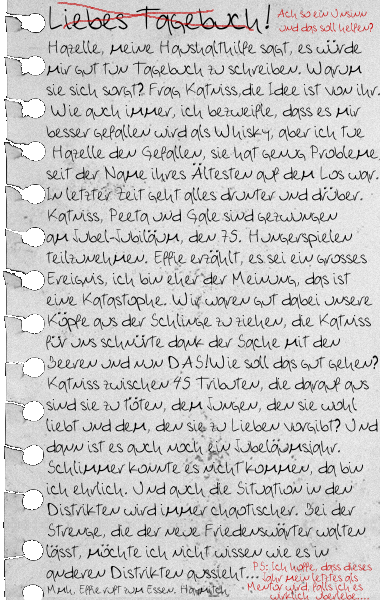 Liebes Tagebuch!
Ach so ein Unsinn
und das soll helfen?
Hazelle, meine Haushalthilfe sagt, es würde
mir gut tun Tagebuch zu schreiben. Warum
sie sich sorgt? Frag Katniss,die Idee ist von ihr.
Wie auch immer, ich bezweifle, dass es mir
besser gefallen wird als Whisky, aber ich tue
Hazelle den Gefallen, sie hat genug Probleme
seit der Name ihres Ältesten auf dem Los war.
In letzter Zeit geht alles drunter und drüber.
Katniss, Peeta und Gale sind gezwungen
am Jubel-Jubiläum, den 75. Hungerspielen
teilzunehmen. Effie erzählt, es sei ein grosses
Ereignis, ich bin eher der Meinung, das ist
eine Katastophe. Wir waren gut dabei unsere
Köpfe aus der Schlinge zu ziehen, die Katniss
für uns schnürte dank der Sache mit den
Beeren und nun DAS!Wie soll das gut gehen?
Katniss zwischen 45 Tributen, die darauf aus
sind sie zu töten, dem Jungen, den sie wohl
liebt und dem, den sie zu Lieben vorgibt? Und
dann ist es auch noch ein Jubeläumsjahr.
Schlimmer könnte es nicht kommen, da bin
ich ehrlich. Und auch die Situation in den
Distrikten wird immer chaotischer. Bei der
Strenge, die der neue Friedenswärter walten
lässt, möchte ich nicht wissen wie es in
anderen Distrikten aussieht...
PS: Ich hoffe, dass dieses
Jahr mein letztes als
Mentor wird, falls ich es
wirklich überlebe....
Mmh, Effie ruft zum Essen. Haymitch